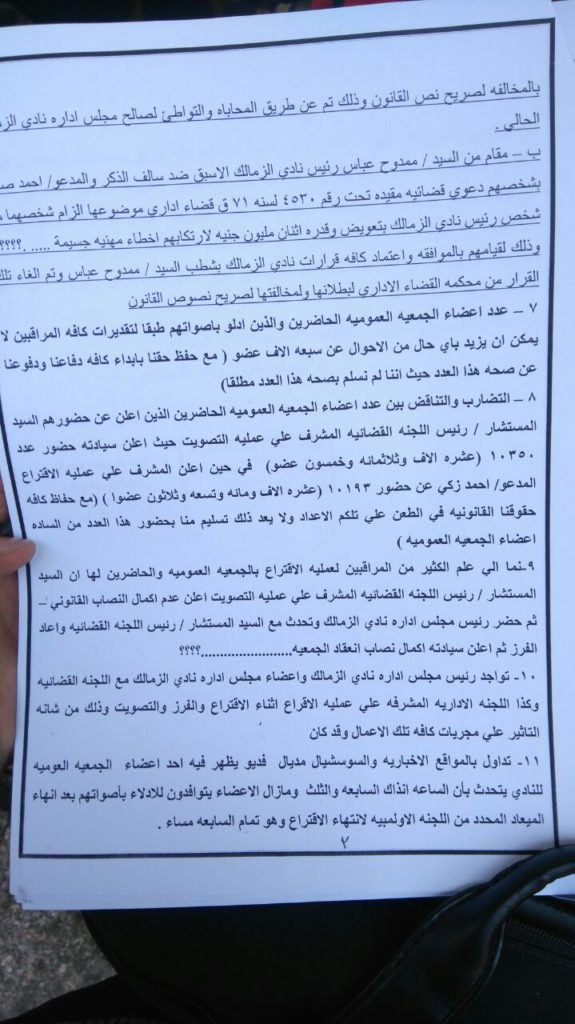 بالمخالفه لصريح نص القانون وذلك تم عن طريق المحاباه والتواطئ لصالح مجلس اداره نادي
الحالي .
ب – مقام من السيد / ممدوح عباس رئيس نادي الزمالك الاسبق ضد سالف الذكر والمدعو/ احمد
بشخصهم دعوي قضائيه مقيده تحت رقم ٤٥٣٠ لسنه ٧١ ق قضاء اداري موضوعها الزام شخصهما
شخص رئيس نادي الزمالك بتعويض وقدره اثنان مليون جنيه لارتكابهم اخطاء مهنيه جسيمة ..... .؟؟؟؟
وذلك لقيامهم بالموافقه واعتماد كافه قرارات نادي الزمالك بشطب السيد / ممدوح عباس وتم الغاء
القرار من محكمه القضاء الاداري لبطلانها ولمخالفتها لصريح نصوص القانون
٧ – عدد اعضاء الجمعيه العموميه الحاضرين والذين ادلو باصواتهم طبقا لتقديرات كافه المراقبين لا
يمكن ان يزيد باي حال من الاحوال عن سبعه الاف عضو ( مع حفظ حقنا بابداء كافه دفاعنا ودفوعنا
عن صحه هذا العدد حيث اننا لم نسلم بصحه هذا العدد مطلقا)
٨ – التضارب والتناقض بين عدد اعضاء الجمعيه العموميه الحاضرين الذين اعلن عن حضورهم السيد
المستشار / رئيس اللجنه القضائيه المشرف علي عمليه التصويت حيث اعلن سيادته حضور عدد
١٠٣٥٠ (عشره الاف وثلاثمائه وخمسون عضو) في حين اعلن المشرف علي عمليه الاقتراع
المدعو/ احمد زكي عن حضور ١٠١٩٣ (عشره الاف ومائه وتسعه وثلاثون عضوا ) (مع حفاظ كافه
حقوقنا القانونيه في الطعن علي تلكم الاعداد ولا يعد ذلك تسليم منا بحضور هذا العدد من الساده
اعضاء الجمعيه العموميه )
٩-نما الي علم الكثير من المراقبين لعمليه الاقتراع بالجمعيه العموميه والحاضرين لها ان السيد
المستشار / رئيس اللجنه القضائيه المشرف علي عمليه التصويت اعلن عدم اكمال النصاب القانوني –
ثم حضر رئيس مجلس اداره نادي الزمالك وتحدث مع السيد المستشار / رئيس اللجنه القضائيه واعاد
الفرز ثم اعلن سيادته اكمال نصاب انعقاد الجمعيه.......................؟؟؟؟
١٠- تواجد رئيس مجلس اداره نادي الزمالك واعضاء مجلس اداره نادي الزمالك مع اللجنه القضائيه
وكذا اللجنه الاداريه المشرفه علي عمليه الاقراع اثناء الاقتراع والفرز والتصويت وذلك من شانه
التاثير علي مجريات كافه تلك الاعمال وقد كان
١١- تداول بالمواقع الاخباريه والسوسشيال مديال فديو يظهر فيه احد اعضاء الجمعيه العوميه
للنادي يتحدث بأن الساعه انذاك السابعه والثلث ومازال الاعضاء يتوافدون للادلاء بأصواتهم بعد انهاء
الميعاد المحدد من اللجنه الاولمبيه لانتهاء الاقتراع وهو تمام السابعه مساء .
٢